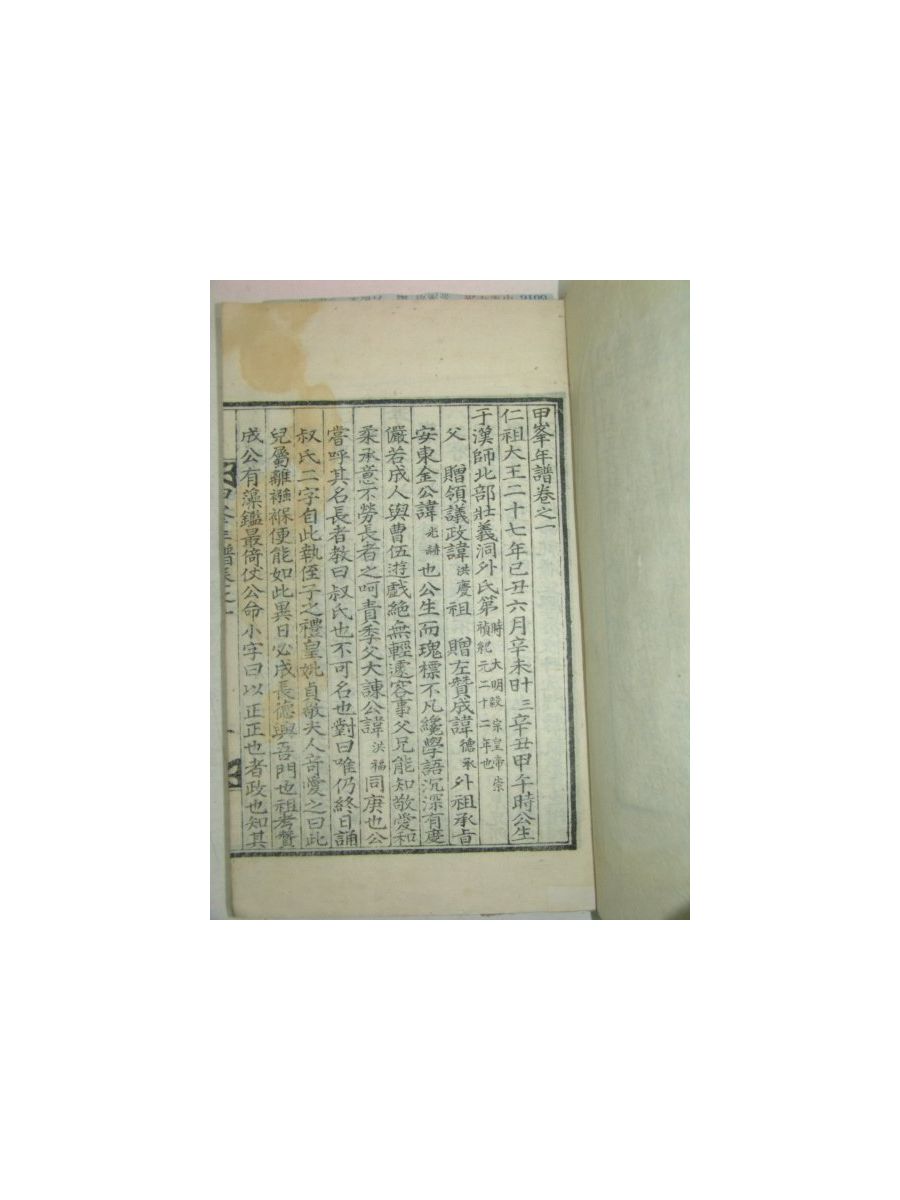 甲峯年譜卷之一
仁祖大王二十七年己丑六月辛未廿三辛丑甲午時公生
于漢師北部壯義洞外氏第時大明毅宗皇帝崇禎紀元二十二年也
父 贈領議政諱洪慶祖 贈左贊成諱德承外祖承旨
安東金公諱光 也公生而瑰標不凡纔學語沉深有度
儼若成人與曹伍遊戲絶無輕遽容事父兄能知敬愛和
柔承意不勞長者之呵責季父大諫公諱洪福同庚也公
嘗呼其名長者敎曰叔氏也不可名也對曰唯仍終日誦
叔氏二字自此執侄子之禮皇妣貞敬夫人奇愛之曰此
兒屬離襁褓便能如此異日必成長德興吾門也祖考贊
成公有藻鑑最倚仗公命小字曰以正正也者政也知其
年譜卷之一